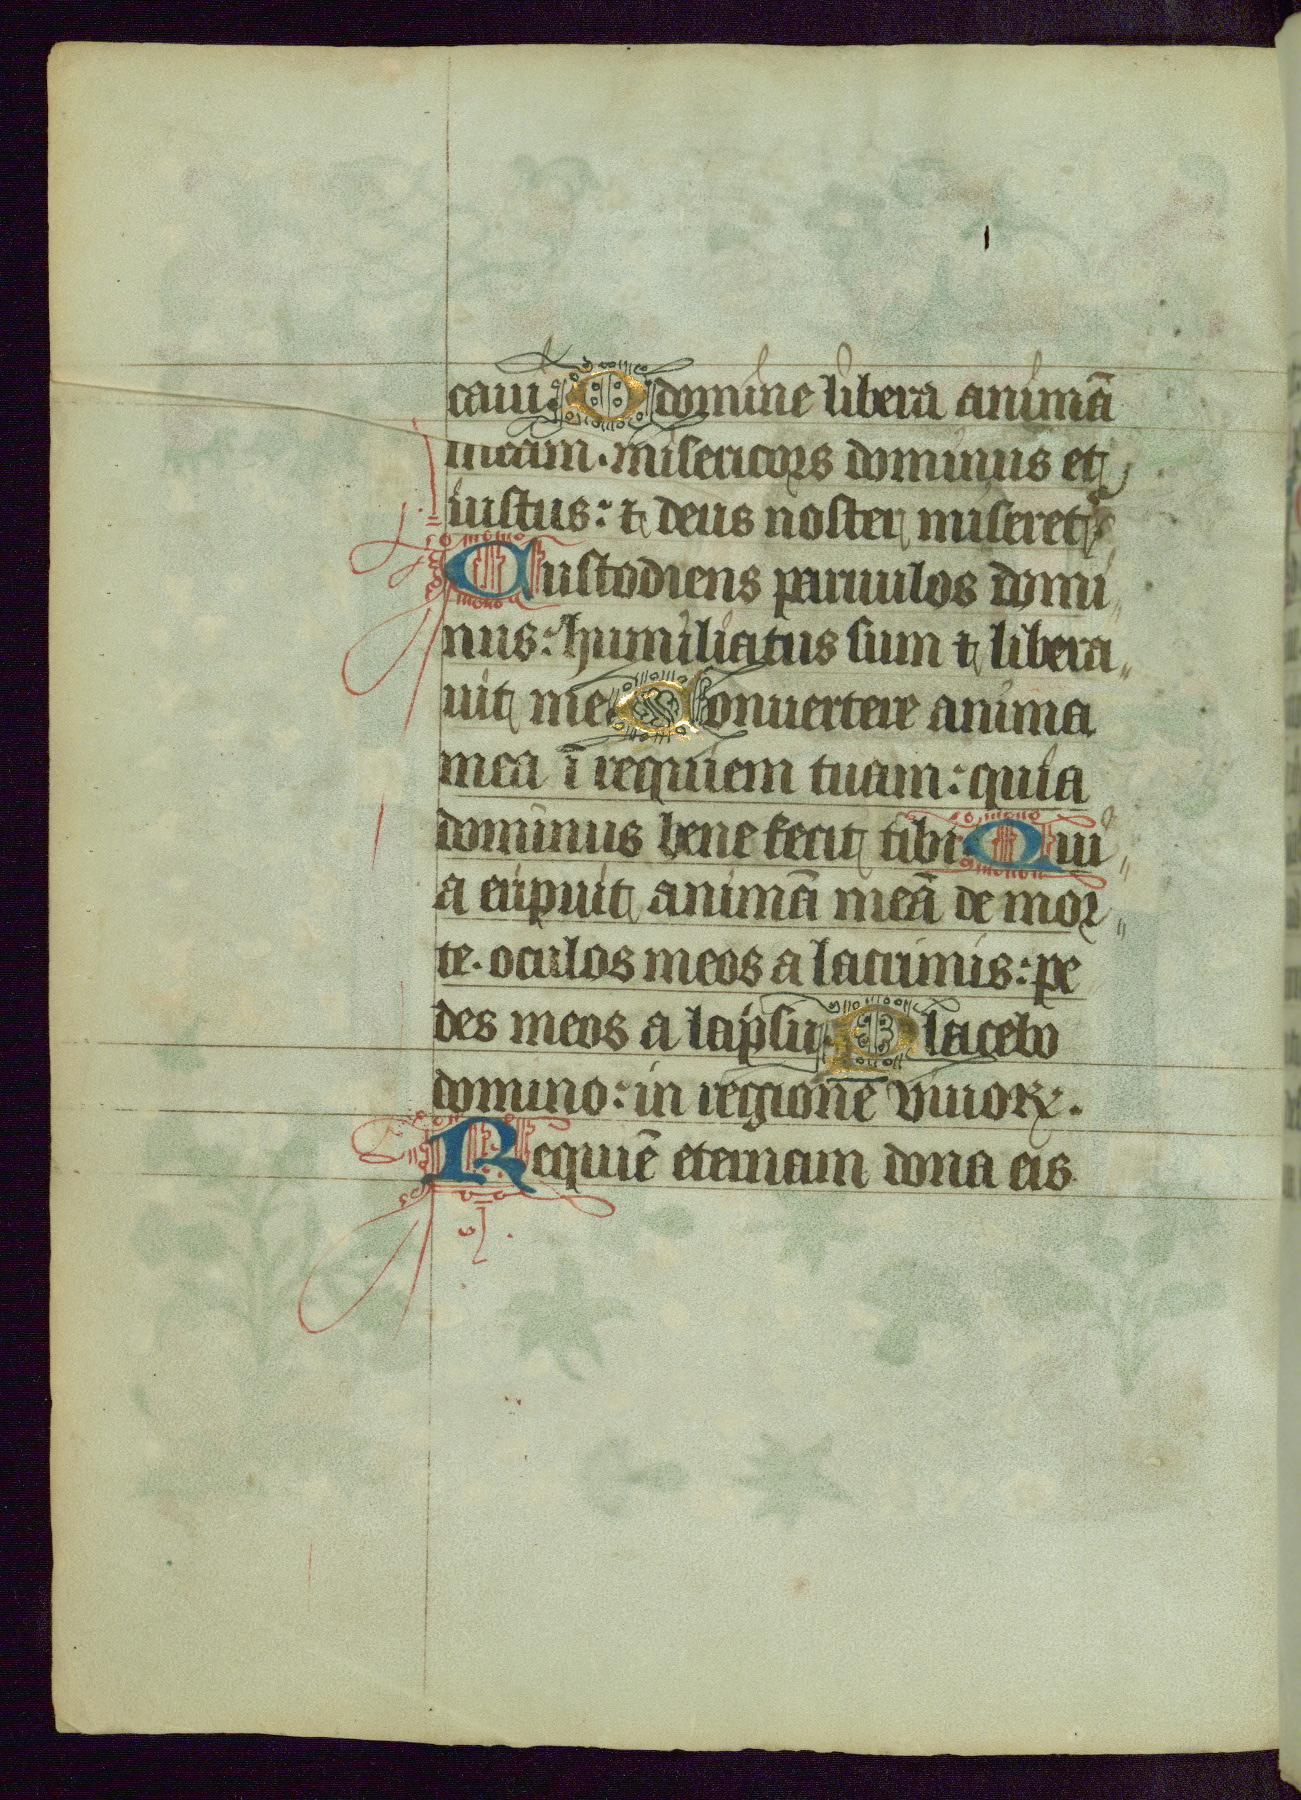 caui. O domine libera animā
meam. misericors dominus et
iustus: ⁊ deus noster miseret᷑
Custodiens paruulos domi〃
nus: humiliatus sum ⁊ libera〃
uit me Conuertere anima
mea ī requiem tuam: quia
dominus bene fecit tibi. Qui〃
a eripuit animā meā de mor〃
te. oculos meos a lacrimis: pe
des meos a lapsu. Placebo
domino: in regione viuoꝝ.
Requiē eternam dona eis